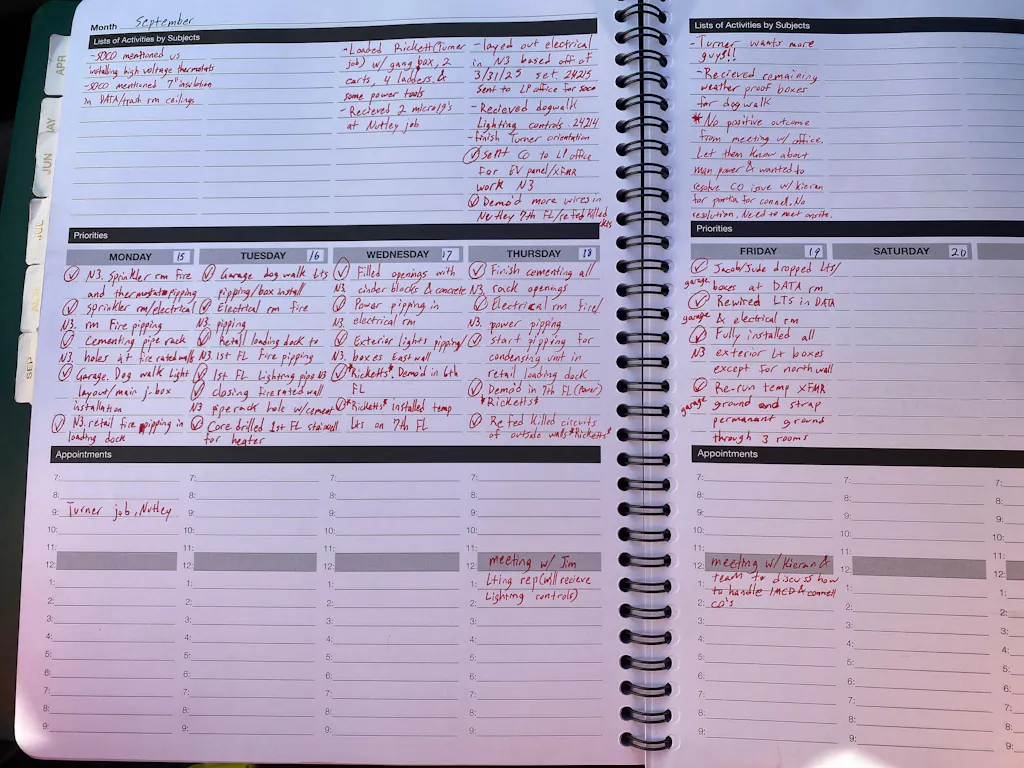 Month September
Lists of Activities by Subjects
-SOCO mentioned us
installing high voltage thermostats
-SOCO mentioned 7" insulation
in DATA/trash rm ceilings
-Loaded Ricketts(Turner
job) w/ gang box, 2
carts, 4 ladders &
some power tools
-Recieved 2 micro19's
at Nutley job
-layed out electrical
in N3 based off of
3/31/25 set. 24215
Sent to LP office for soco
-Recieved dogwalk
Lighting controls. 24214
-finish Turner orientation
✓ Sent CO to LP office
for EV panel/XFMR
work N3
✓ Demo'd more wires in
Nutley 7th FL/refed killed
Priorities
MONDAY 15
✓ N3. Sprinkler rm Fire
and thermostat pipping
✓ Sprinkler rm/electrical
N3. rm Fire pipping
✓ Cementing pipe rack
N3. holes at fire rated walls
✓ Garage. Dog walk Light
layout/main j-box
installation
✓ N3. retail fire pipping in
loading dock
TUESDAY 16
✓ Garage dog walk Lts
pipping/box install
✓ Electrical rm fire
N3. pipping
✓ Retail loading dock to
N3. 1st FL Fire pipping
✓ 1st FL Lighting pipe N3
✓ closing fire rated wall
N3 pipe rack hole w/cement
✓ Core drilled 1st FL stairwell
for heater
WEDNESDAY 17
✓ Filled openings with
N3. cinder blocks & concrete
✓ Power pipping in
N3. electrical rm
✓ Exterior lights pipping/
N3. boxes East wall
✓ *Ricketts*. Demo'd in 6th
FL
✓ *Ricketts* installed temp
Lts on 7th FL
THURSDAY 18
✓ Finish cementing all
N3. rack openings
✓ Electrical rm Fire/
N3. power pipping
✓ start pipping for
condensing unit in
retail loading dock
✓ Demo'd in 7th FL (Power)
*Ricketts*
✓ Refed Killed circuits
of outside walls *Ricketts*
Appointments
7:
8:
9: Turner job, Nutley
10:
11:
12:
1:
2:
3:
4:
5:
6:
7:
8:
9:
7:
8:
9:
10:
11:
12:
1:
2:
3:
4:
5:
6:
7:
8:
9:
7:
8:
9:
10:
11:
12:
1:
2:
3:
4:
5:
6:
7:
8:
9:
7:
8:
9:
10:
11:
12: meeting w/ Jim
1: Lting rep(will recieve
2: Lighting controls)
3:
4:
5:
6:
7:
8:
9:
Lists of Activities by Subjects
-Turner wants more
guys!!
-Recieved remaining
weather proof boxes
for dogwalk
*No positive outcome
from meeting w/ office.
Let them know about
man power & wanted to
resolve CO issue w/ Kieran
for portia for connell. No
resolution. Need to meet onsite.
Priorities
FRIDAY 19
✓ Jacob/Jude dropped Lts/
garage boxes at DATA rm
✓ Rewired LTS in DATA
garage & electrical rm
✓ Fully installed all
N3 exterior Lt boxes
except for north wall
✓ Re-run temp XFMR
garage ground and strap
permanant ground
through 3 rooms
SATURDAY 20
Appointments
7:
8:
9:
10:
11:
12: meeting w/ Kieran &
1: team to discuss how
to handle IMED & connell
2: CO's
3:
4:
5:
6:
7:
8:
9:
7:
8:
9:
10:
11:
12:
1:
2:
3:
4:
5:
6:
7:
8:
9:
7:
8:
9:
10:
11:
12:
1:
2:
3:
4:
5:
6:
7:
8:
9:
APR
MAY
JUN
JUL
AUG
SEP